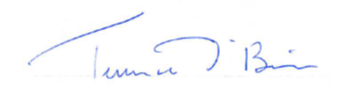 Terence O'Brien